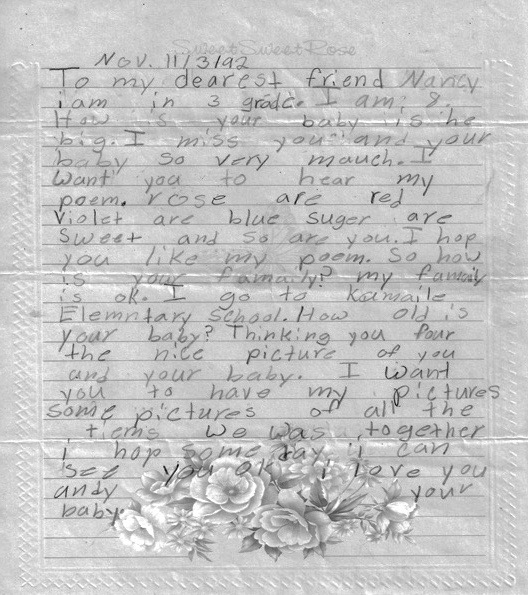 SweetSweetRose
Nov. 11/3/92
To my dearest friend Nancy
i am in 3 grade. I am 8.
How is your baby is he
big. I miss you and your
baby so very mauch. I
want you to hear my
poem. rose are red
violet are blue suger are
sweet and so are you. I hop
you like my poem. So how
is your famaily? my famaily
is ok. I go to Kamaile
Elemntary School. How old is
your baby? Thinking you four
the nice picture of you
and your baby. I want
you to have my pictures
some pictures of all the
tiems we was together
i hop some day i can
see you ok i love you
andy your
baby.